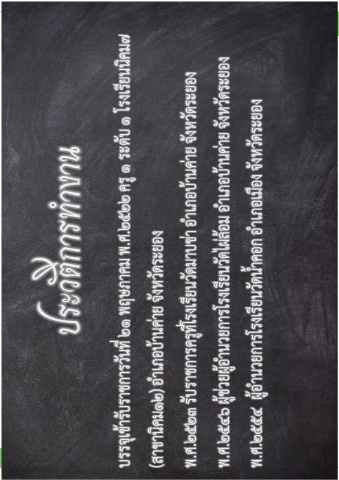 ประวัติการทำงาน
บรรจุเข้ารับราชการวันที่ ๒๑ พฤษภาคม พ.ศ.๒๕๒๒ ครู ๑ ระดับ ๑ โรงเรียนนิคม๗
(สาขานิคม๑๒) อำเภอบ้านค่าย จังหวัดระยอง
พ.ศ.๒๕๒๓ รับราชการครูที่โรงเรียนวัดมาบข่า อำเภอบ้านค่าย จังหวัดระยอง
พ.ศ.๒๕๔๖ ผู้ช่วยผู้อำนวยการโรงเรียนวัดไผ่ล้อม อำเภอบ้านค่าย จังหวัดระยอง
พ.ศ.๒๕๕๔ ผู้อำนวยการโรงเรียนวัดน้ำคอก อำเภอเมือง จังหวัดระยอง